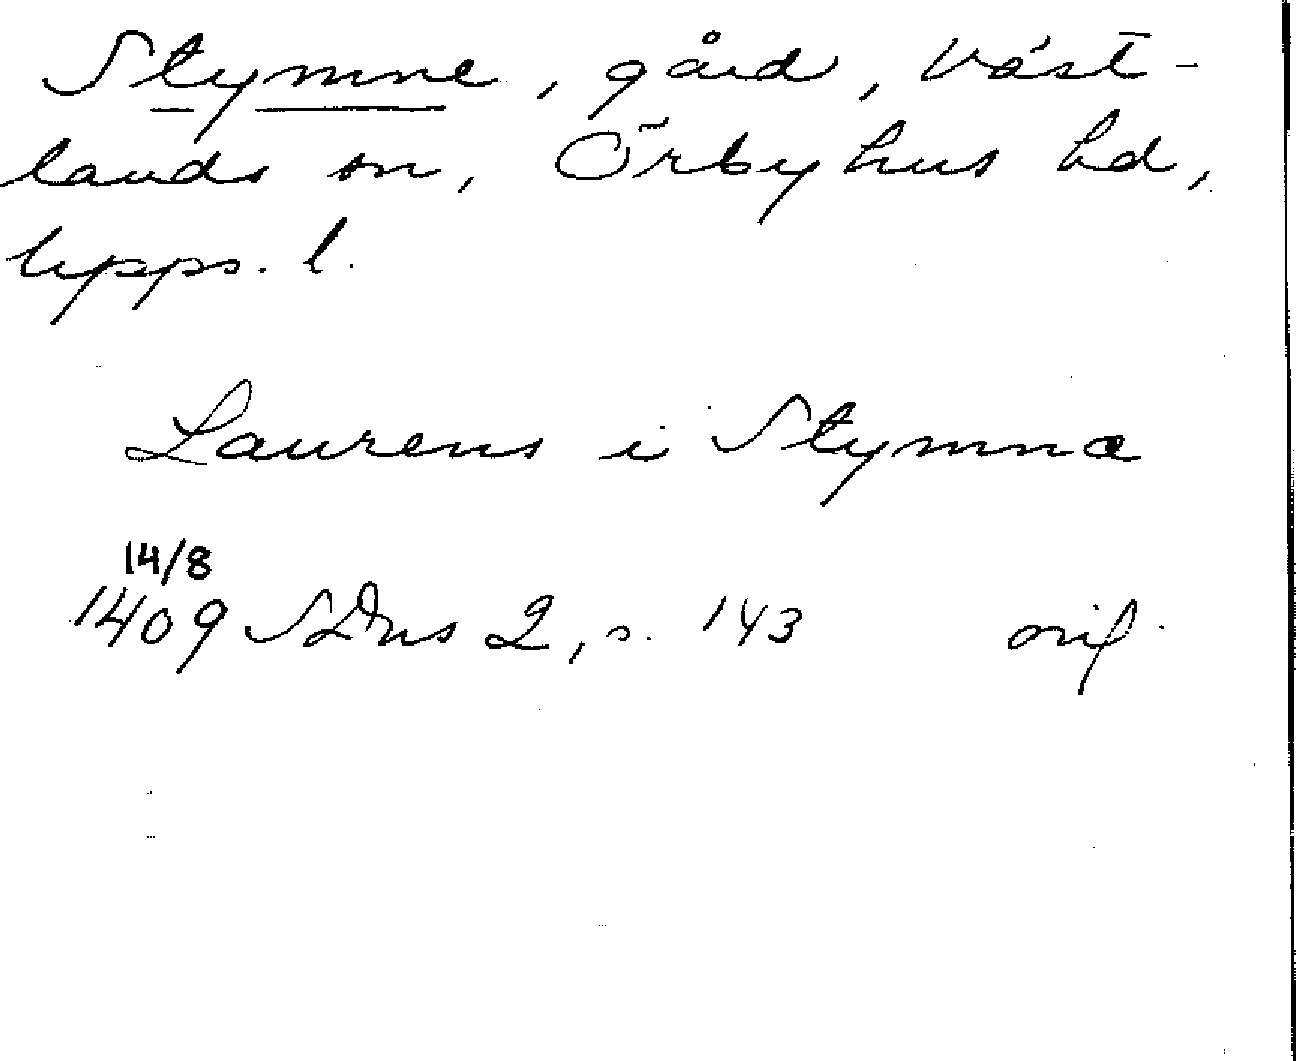 Stymne, gård, Väst-
lands sn, Örbyhus hd,
Upps. l.
Laurens i Stymnæ
14/8
1409 SDns 2, s. 143 orig.